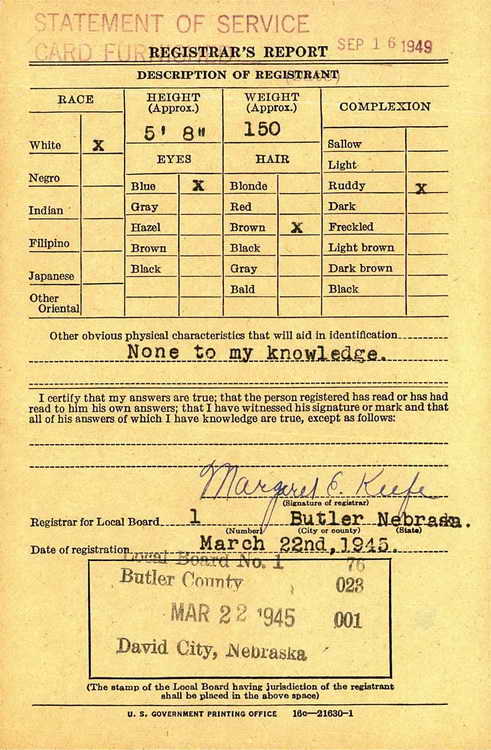 STATEMENT OF SERVICE
CARD FURNISHED
REGISTRAR'S REPORT
SEP 16 1949
DESCRIPTION OF REGISTRANT
RACE
HEIGHT
(Approx.)
WEIGHT
(Approx.)
COMPLEXION
5' 8"
150
White X
EYES
HAIR
Sallow
Light
Negro
Blue X
Blonde
Ruddy X
Gray
Red
Dark
Indian
Hazel
Brown X
Freckled
Filipino
Brown
Black
Light brown
Japanese
Black
Gray
Dark brown
Other
Oriental
Bald
Black
Other obvious physical characteristics that will aid in identification
None to my knowledge.
I certify that my answers are true; that the person registered has read or has had
read to him his own answers; that I have witnessed his signature or mark and that
all of his answers of which I have knowledge are true, except as follows:
Margaret E. Keefe
(Signature of registrar)
Registrar for Local Board 1 Butler Nebraska.
(Number) (City or county) (State)
Date of registration March 22nd,1945.
Local Board No. 1 76
Butler County 023
MAR 22 1945 001
David City, Nebraska
(The stamp of the Local Board having jurisdiction of the registrant
shall be placed in the above space)
U. S. GOVERNMENT PRINTING OFFICE 16c—21630-1